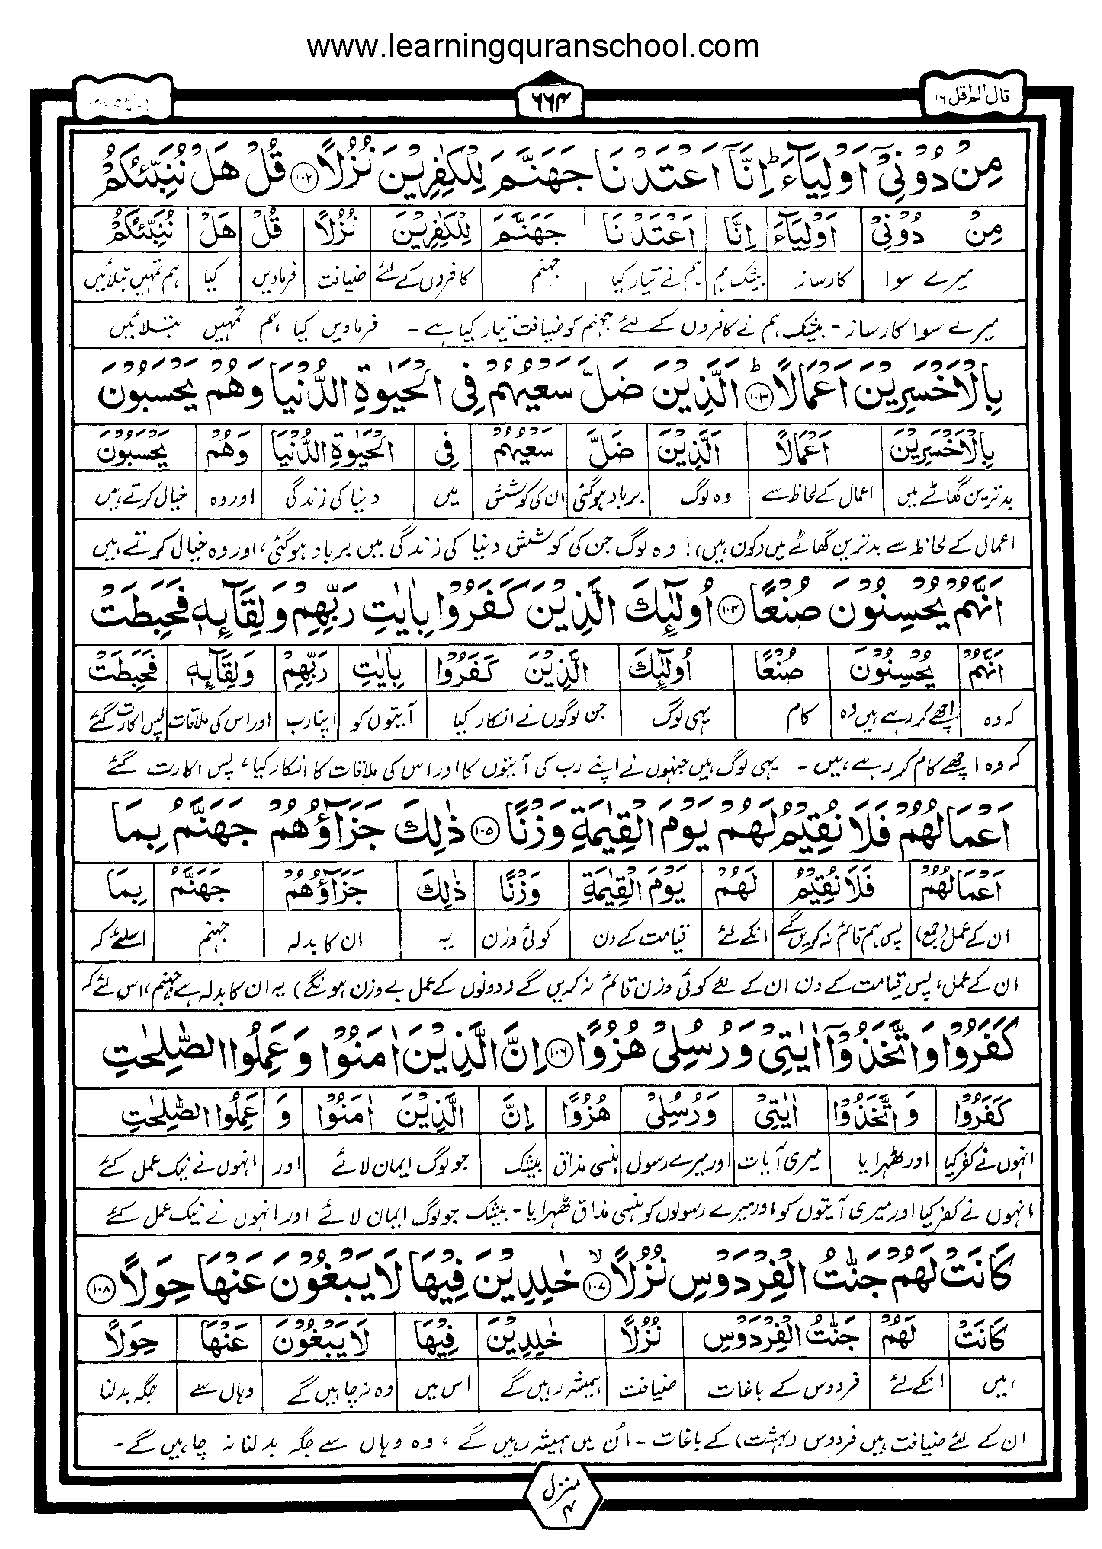 www.learningquranschool.com
قال الم اقل ١٦
٦٦٤
مِنْ دُوْنِىْٓ اَوْلِيَآءَ ؕ اِنَّآ اَعْتَدْنَا جَهَنَّمَ لِلْكٰفِرِيْنَ نُزُلًا ﴿۱۰۲﴾ قُلْ هَلْ نُنَبِّئُكُمْ
مِنْ دُوْنِىْٓ اَوْلِيَآءَ اِنَّا اَعْتَدْنَا جَهَنَّمَ لِلْكٰفِرِيْنَ نُزُلًا قُلْ هَلْ نُنَبِّئُكُمْ
میرے سوا کارساز بیشک ہم ہم نے تیار کیا جہنم کافروں کے لئے ضیافت فرمادیں کیا ہم تمہیں بتلائیں
میرے سوا کارساز - بیشک ہم نے کافروں کے لئے جہنم کو ضیافت تیار کیا ہے - فرمادیں کیا ہم تمہیں بتلائیں
بِالْاَخْسَرِيْنَ اَعْمَالًا ؕ ﴿۱۰۳﴾ اَلَّذِيْنَ ضَلَّ سَعْيُهُمْ فِى الْحَيٰوةِ الدُّنْيَا وَهُمْ يَحْسَبُوْنَ
بِالْاَخْسَرِيْنَ اَعْمَالًا اَلَّذِيْنَ ضَلَّ سَعْيُهُمْ فِى الْحَيٰوةِ الدُّنْيَا وَهُمْ يَحْسَبُوْنَ
بدترین گھاٹے میں اعمال کے لحاظ سے وہ لوگ برباد ہوگئی ان کی کوشش میں دنیا کی زندگی اور وہ خیال کرتے ہیں
اعمال کے لحاظ سے بدترین گھاٹے میں (کون ہیں)! وہ لوگ جن کی کوشش دنیا کی زندگی میں برباد ہوگئی، اور وہ خیال کرتے ہیں
اَنَّهُمْ يُحْسِنُوْنَ صُنْعًا ﴿۱۰۴﴾ اُولٰٓئِكَ الَّذِيْنَ كَفَرُوْا بِاٰيٰتِ رَبِّهِمْ وَلِقَآئِهٖ فَحَبِطَتْ
اَنَّهُمْ يُحْسِنُوْنَ صُنْعًا اُولٰٓئِكَ الَّذِيْنَ كَفَرُوْا بِاٰيٰتِ رَبِّهِمْ وَلِقَآئِهٖ فَحَبِطَتْ
کہ وہ اچھے کر رہے ہیں وہ کام یہی لوگ جن لوگوں نے انکار کیا آیتوں کو اپنا رب اور اس کی ملاقات پس اکارت گئے
کہ وہ اچھے کام کر رہے ہیں - یہی لوگ ہیں جنہوں نے اپنے رب کی آیتوں کا اور اس کی ملاقات کا انکار کیا، پس اکارت گئے
اَعْمَالُهُمْ فَلَا نُقِيْمُ لَهُمْ يَوْمَ الْقِيٰمَةِ وَزْنًا ﴿۱۰۵﴾ ذٰلِكَ جَزَآؤُهُمْ جَهَنَّمُ بِمَا
اَعْمَالُهُمْ فَلَا نُقِيْمُ لَهُمْ يَوْمَ الْقِيٰمَةِ وَزْنًا ذٰلِكَ جَزَآؤُهُمْ جَهَنَّمُ بِمَا
ان کے عمل (جمع) پس ہم قائم نہ کریں گے انکے لئے قیامت کے دن کوئی وزن یہ ان کا بدلہ جہنم اسلئے کہ
ان کے عمل، پس قیامت کے دن ان کے لئے کوئی وزن قائم نہ کریں گے (دونوں کے عمل بے وزن ہونگے) یہ ان کا بدلہ ہے جہنم، اس لئے کہ
كَفَرُوْا وَاتَّخَذُوْٓا اٰيٰتِىْ وَرُسُلِىْ هُزُوًا ﴿۱۰۶﴾ اِنَّ الَّذِيْنَ اٰمَنُوْا وَعَمِلُوا الصّٰلِحٰتِ
كَفَرُوْا وَاتَّخَذُوْٓا اٰيٰتِىْ وَرُسُلِىْ هُزُوًا اِنَّ الَّذِيْنَ اٰمَنُوْا وَ عَمِلُوا الصّٰلِحٰتِ
انہوں نے کفر کیا اور ٹھہرایا میری آیات اور میرے رسول ہنسی مذاق بیشک جو لوگ ایمان لائے اور انہوں نے نیک عمل کئے
انہوں نے کفر کیا اور میری آیتوں کو اور میرے رسولوں کو ہنسی مذاق ٹھہرایا - بیشک جو لوگ ایمان لائے اور انہوں نے نیک عمل کئے
كَانَتْ لَهُمْ جَنّٰتُ الْفِرْدَوْسِ نُزُلًا ۙ ﴿۱۰۷﴾ خٰلِدِيْنَ فِيْهَا لَا يَبْغُوْنَ عَنْهَا حِوَلًا ﴿۱۰۸﴾
كَانَتْ لَهُمْ جَنّٰتُ الْفِرْدَوْسِ نُزُلًا خٰلِدِيْنَ فِيْهَا لَا يَبْغُوْنَ عَنْهَا حِوَلًا
ہیں انکے لئے فردوس کے باغات ضیافت ہمیشہ رہیں گے اس میں وہ نہ چاہیں گے وہاں سے جگہ بدلنا
ان کے لئے ضیافت ہیں فردوس (بہشت) کے باغات - اُن میں ہمیشہ رہیں گے، وہ وہاں سے جگہ بدلنا نہ چاہیں گے -
منزل ۴